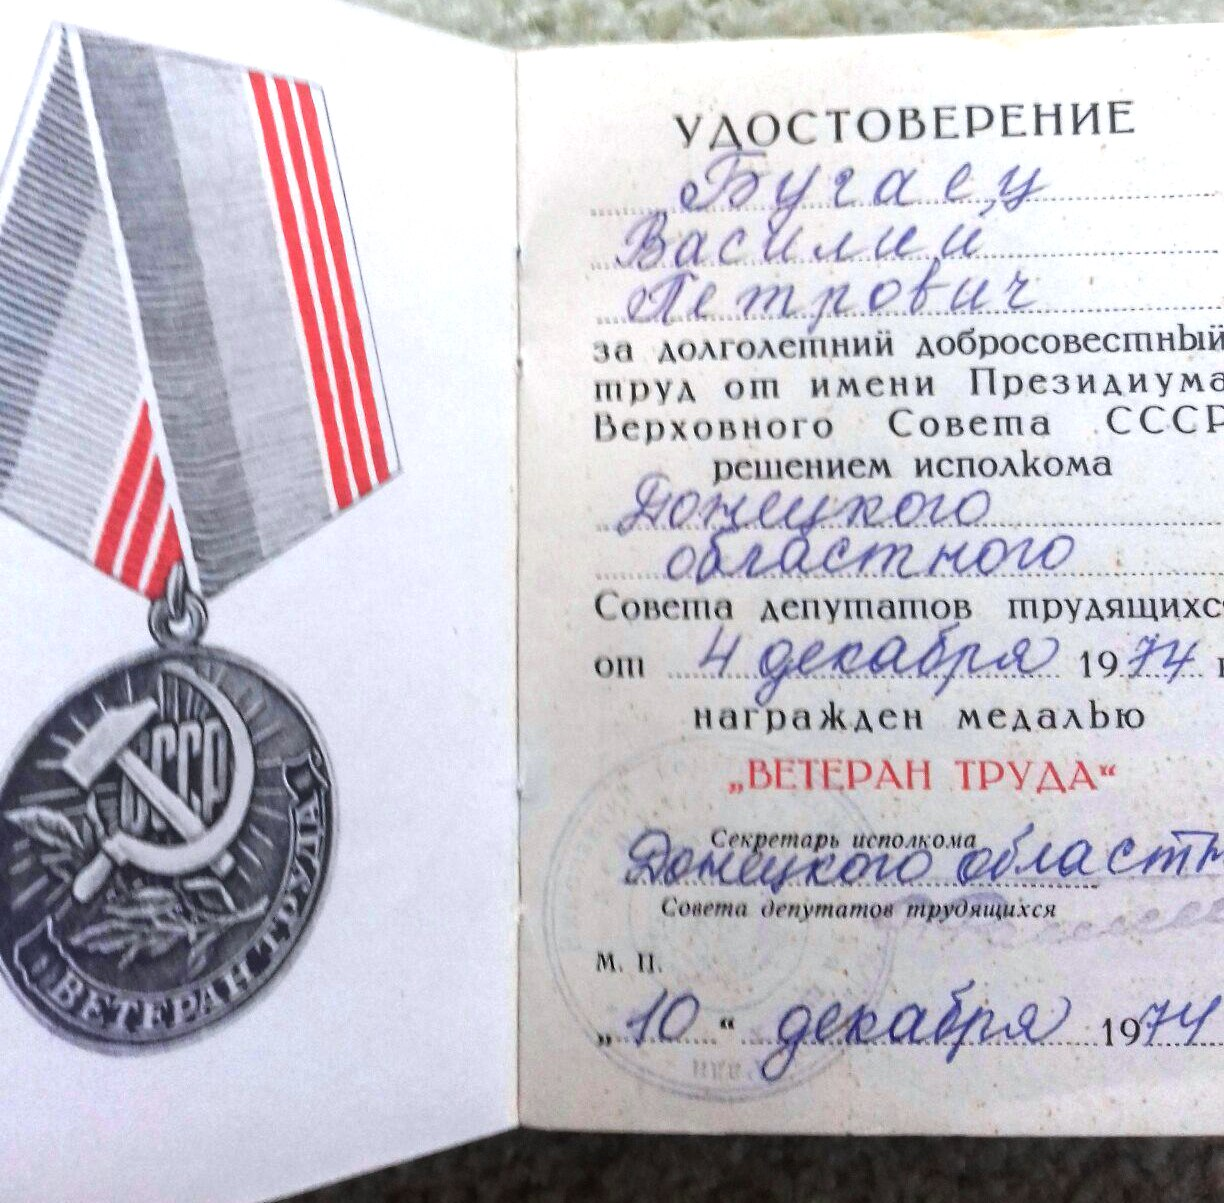 СССР
ВЕТЕРАН ТРУДА
УДОСТОВЕРЕНИЕ
Бугаец
Василий
Петрович
за долголетний добросовестный
труд от имени Президиума
Верховного Совета СССР
решением исполкома
Донецкого
областного
Совета депутатов трудящихс
от 4 декабря 1974 г
награжден медалью
„ВЕТЕРАН ТРУДА“
Секретарь исполкома
Донецкого областн
Совета депутатов трудящихся
М. П.
„10“ декабря 1974